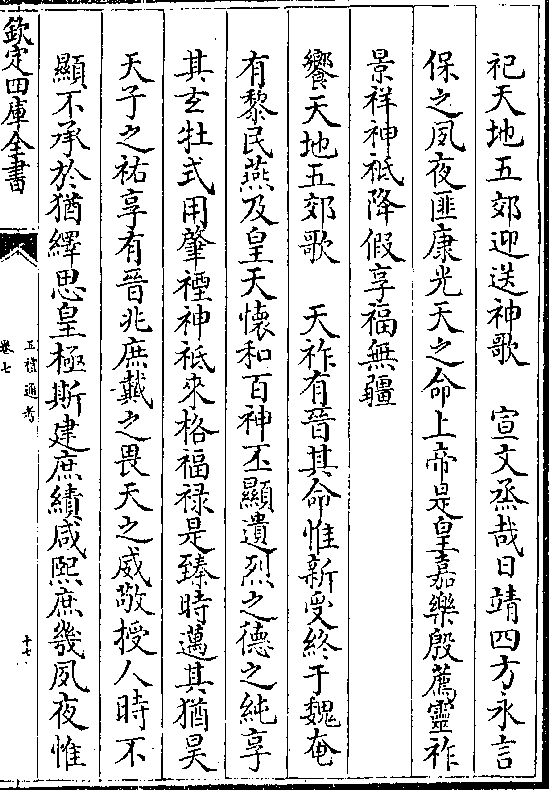 祀天地五郊迎送神歌　宣文烝哉日靖四方永言
保之夙夜匪康光天之命上帝是皇嘉樂殷薦靈祚
景祥神祗降假享福無疆
饗天地五郊歌　天祚有晉其命惟新受終于魏奄
有黎民燕及皇天懷和百神丕顯遺烈之德之純享
其玄牡式用肇禋神祗來格福禄是臻時邁其猶昊
天子之祐享有晉兆庶戴之畏天之威敬授人時不
顯不承於猶繹思皇極斯建庶績咸熙庶幾夙夜惟
欽定四庫全書
五禮通考
卷七
十七